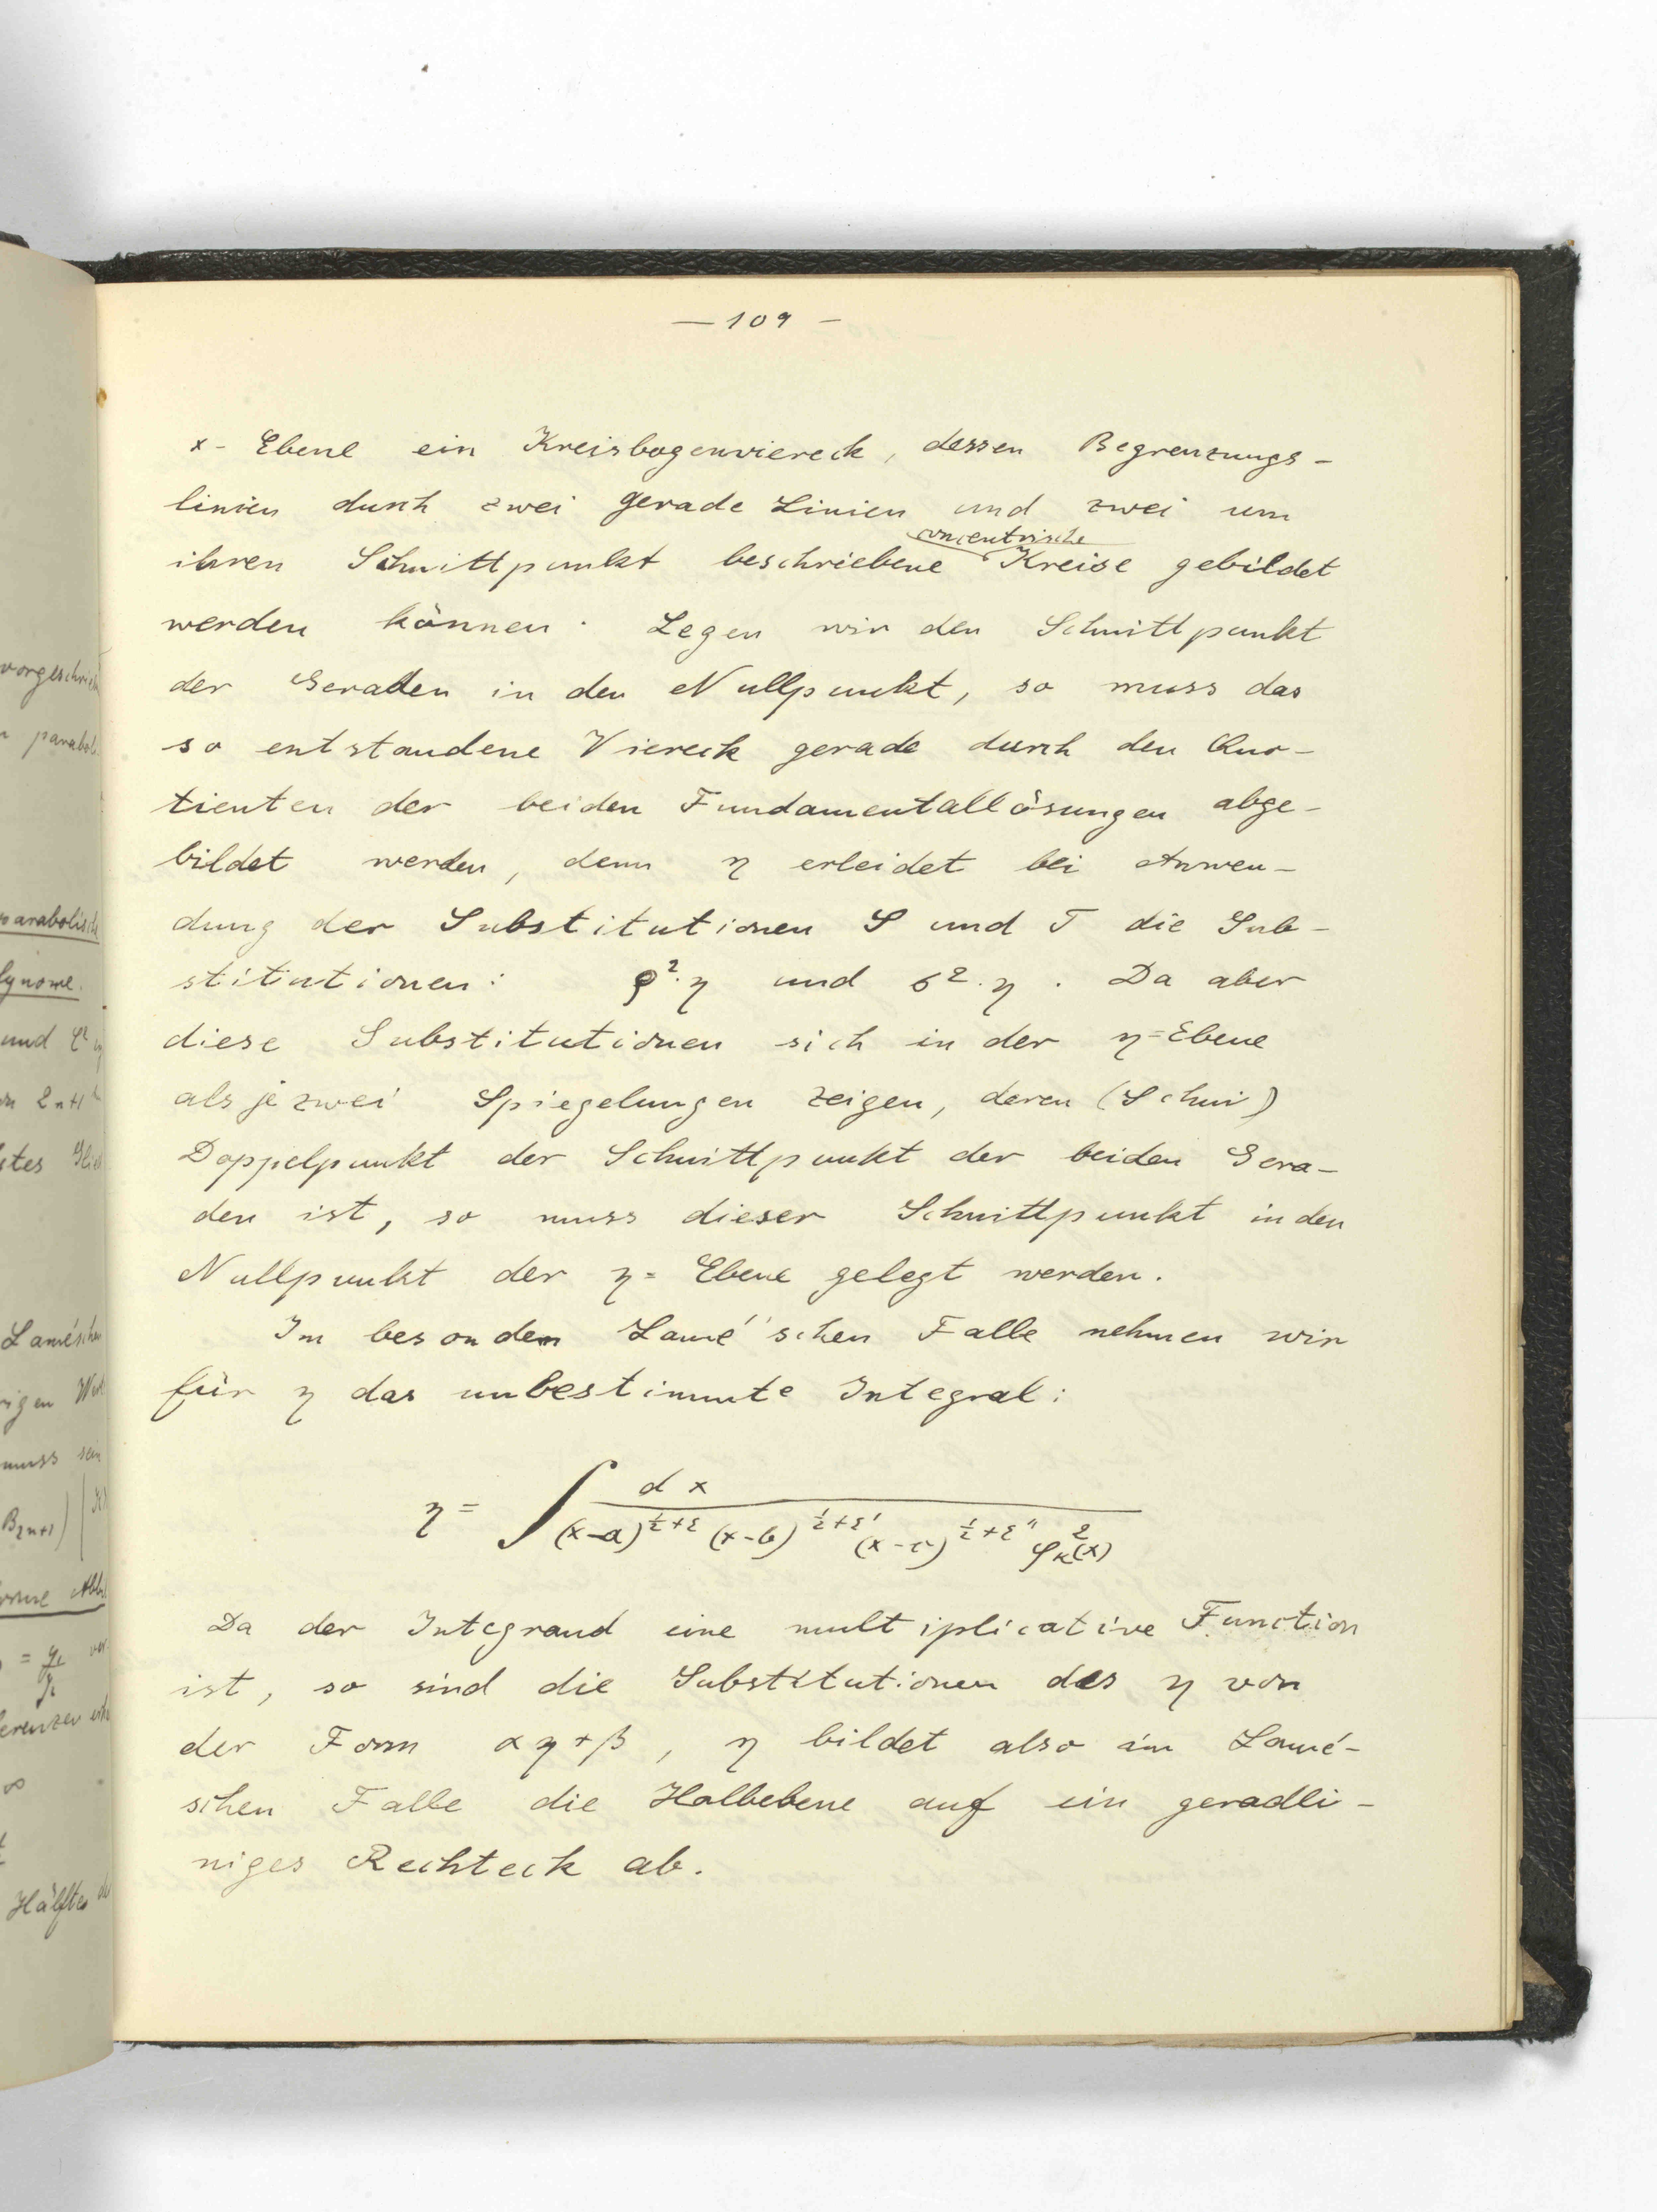 — 109 —
x- Ebene ein Kreisbogenviereck, dessen Begrenzungs-
linien durch zwei gerade Linien und zwei um
concentrische
ihren Schnittpunkt beschriebene Kreise gebildet
werden können. Legen wir den Schnittpunkt
der Geraden in den Nullpunkt, so muss das
so entstandene Viereck gerade durch den Quo-
tienten der beiden Fundamentallösungen abge-
bildet werden, denn η erleidet bei Anwen-
dung der Substitutionen S und T die Sub-
stitutionen: ρ²·η und σ²·η. Da aber
diese Substitutionen sich in der η=Ebene
als je zwei Spiegelungen zeigen, deren (Schni)
Doppelpunkt der Schnittpunkt der beiden Gera-
den ist, so muss dieser Schnittpunkt in den
Nullpunkt der η= Ebene gelegt werden.
Im besondern Lamé'schen Falle nehmen wir
für η das unbestimmte Integral:
η = ∫ dx / (x-a)^{½+ε} (x-b)^{½+ε'} (x-c)^{½+ε''} φ_κ²(x)
Da der Integrand eine multiplicative Function
ist, so sind die Substitutionen des η von
der Form αη+β, η bildet also im Lamé-
schen Falle die Halbebene auf ein geradli-
niges Rechteck ab.
vorgeschrie
parabol
parabolische
und
Lamésche
rigen
muss sein
B₂ₙ₊₁)
Hälften